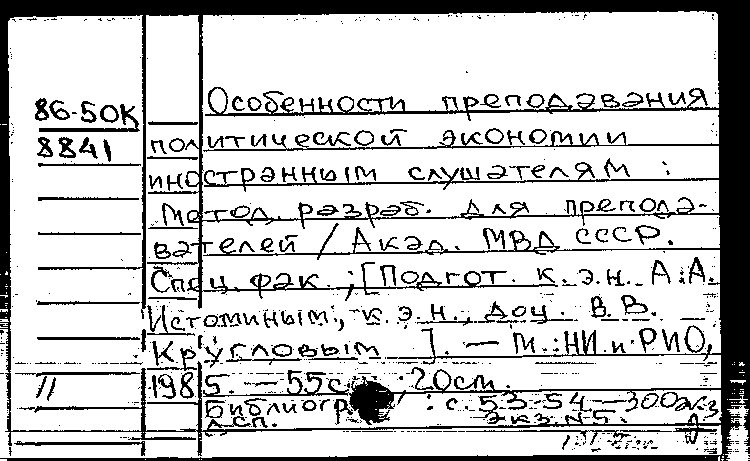 86-50К
8841
Особенности преподавания
политической экономии
иностранным слушателям :
Метод. разраб. для препода-
вателей / Акад. МВД СССР.
Спец. фак. ; [Подгот. к. э. н. А. А.
Истоминым, к. э. н., доц. В. В.
Кругловым ]. — М. : НИ и РИО,
1985. — 55 с. ; 20 см.
11
Библиогр : с. 53-54 — 300 экз
ДСП. экз. N5.